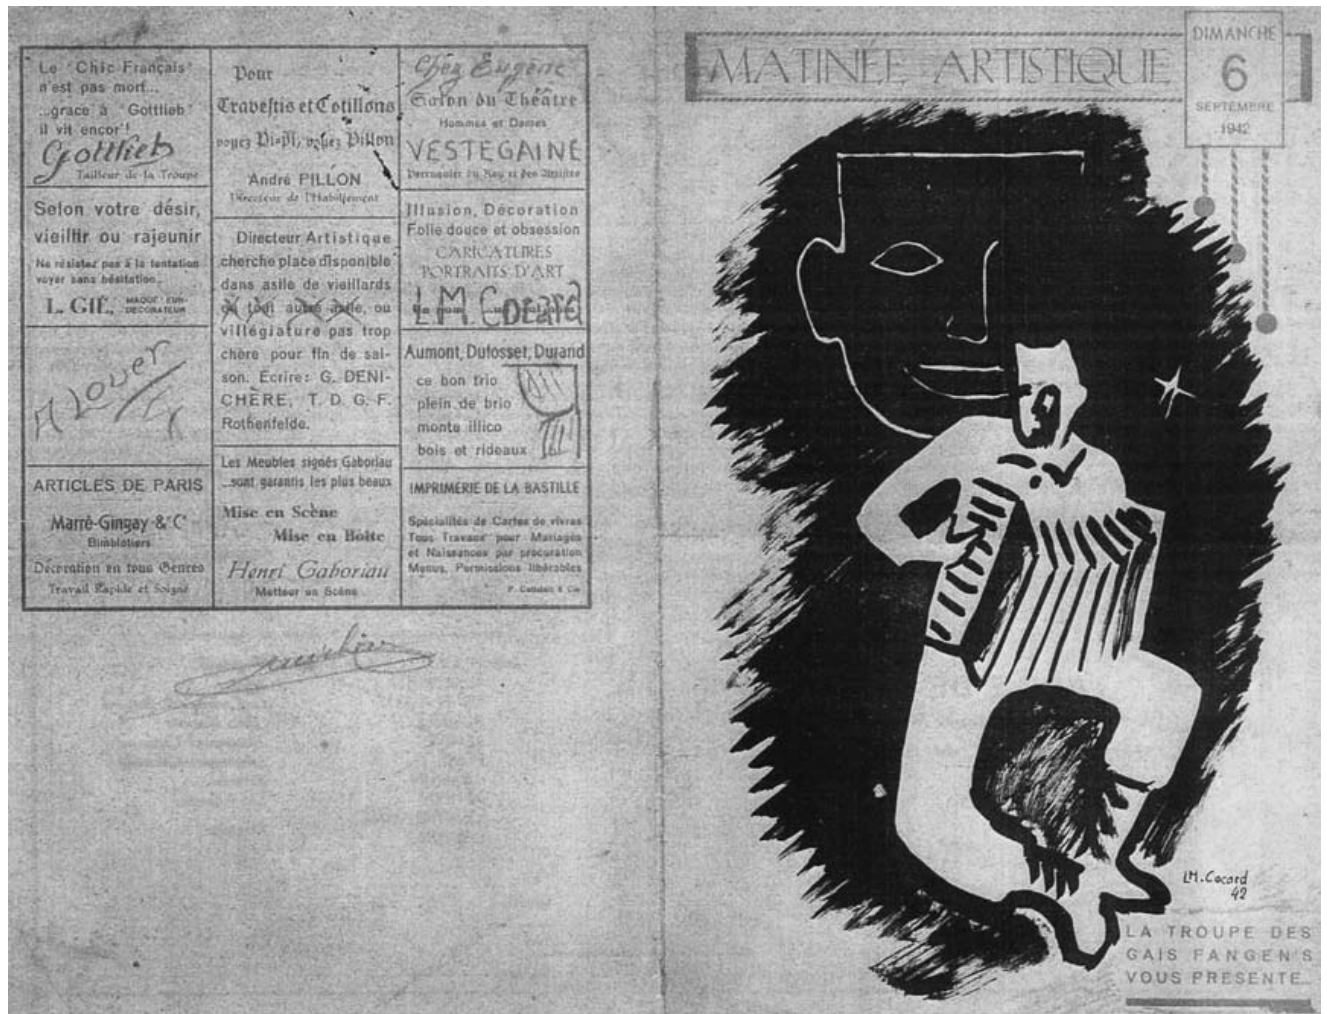 Le "Chic Français"
n'est pas mort...
...grace à "Gottlieb"
il vit encor'!
Gottlieb
Tailleur de la Troupe
Selon votre désir,
vieillir ou rajeunir
Ne résistez pas à la tentation
voyer sans hésitation...
L. GIL,
A Louer
ARTICLES DE PARIS
Marré-Gingay & Cie
Bimblotiers
Décoration en tous Genres
Travail Rapide et Soigné
Pour
Travestis et Cotillons
voyez Pi-Pi, voyez Pillon
André PILLON
Directeur de l'Habillement
Directeur Artistique
cherche place disponible
dans asile de vieillards
ou tout autre asile, ou
villégiature pas trop
chère pour fin de sai-
son. Ecrire: G. DENI-
CHÈRE, T. D. G. F.
Rothenfelde.
Les Meubles signés Gaboriau
...sont garantis les plus beaux
Mise en Scène
Mise en Boîte
Henri Gaboriau
Metteur en Scène
Chez Eugène
Salon du Théâtre
Hommes et Dames
VESTEGAINE
Illusion, Décoration
Folie douce et obsession
CARICATURES
PORTRAITS D'ART
L.M. Cocard
Aumont, Dutosset, Durand
ce bon trio
plein de brio
monte illico
bois et rideaux
IMPRIMERIE DE LA BASTILLE
Spécialités de Cartes de vivres
Tous Travaux pour Mariages
et Naissances par procuration
Menus, Permissions libérables
MATINÉE ARTISTIQUE
DIMANCHE
6
SEPTEMBRE
1942
LM. Cocard
42
LA TROUPE DES
GAIS FANGEN'S
VOUS PRESENTE...